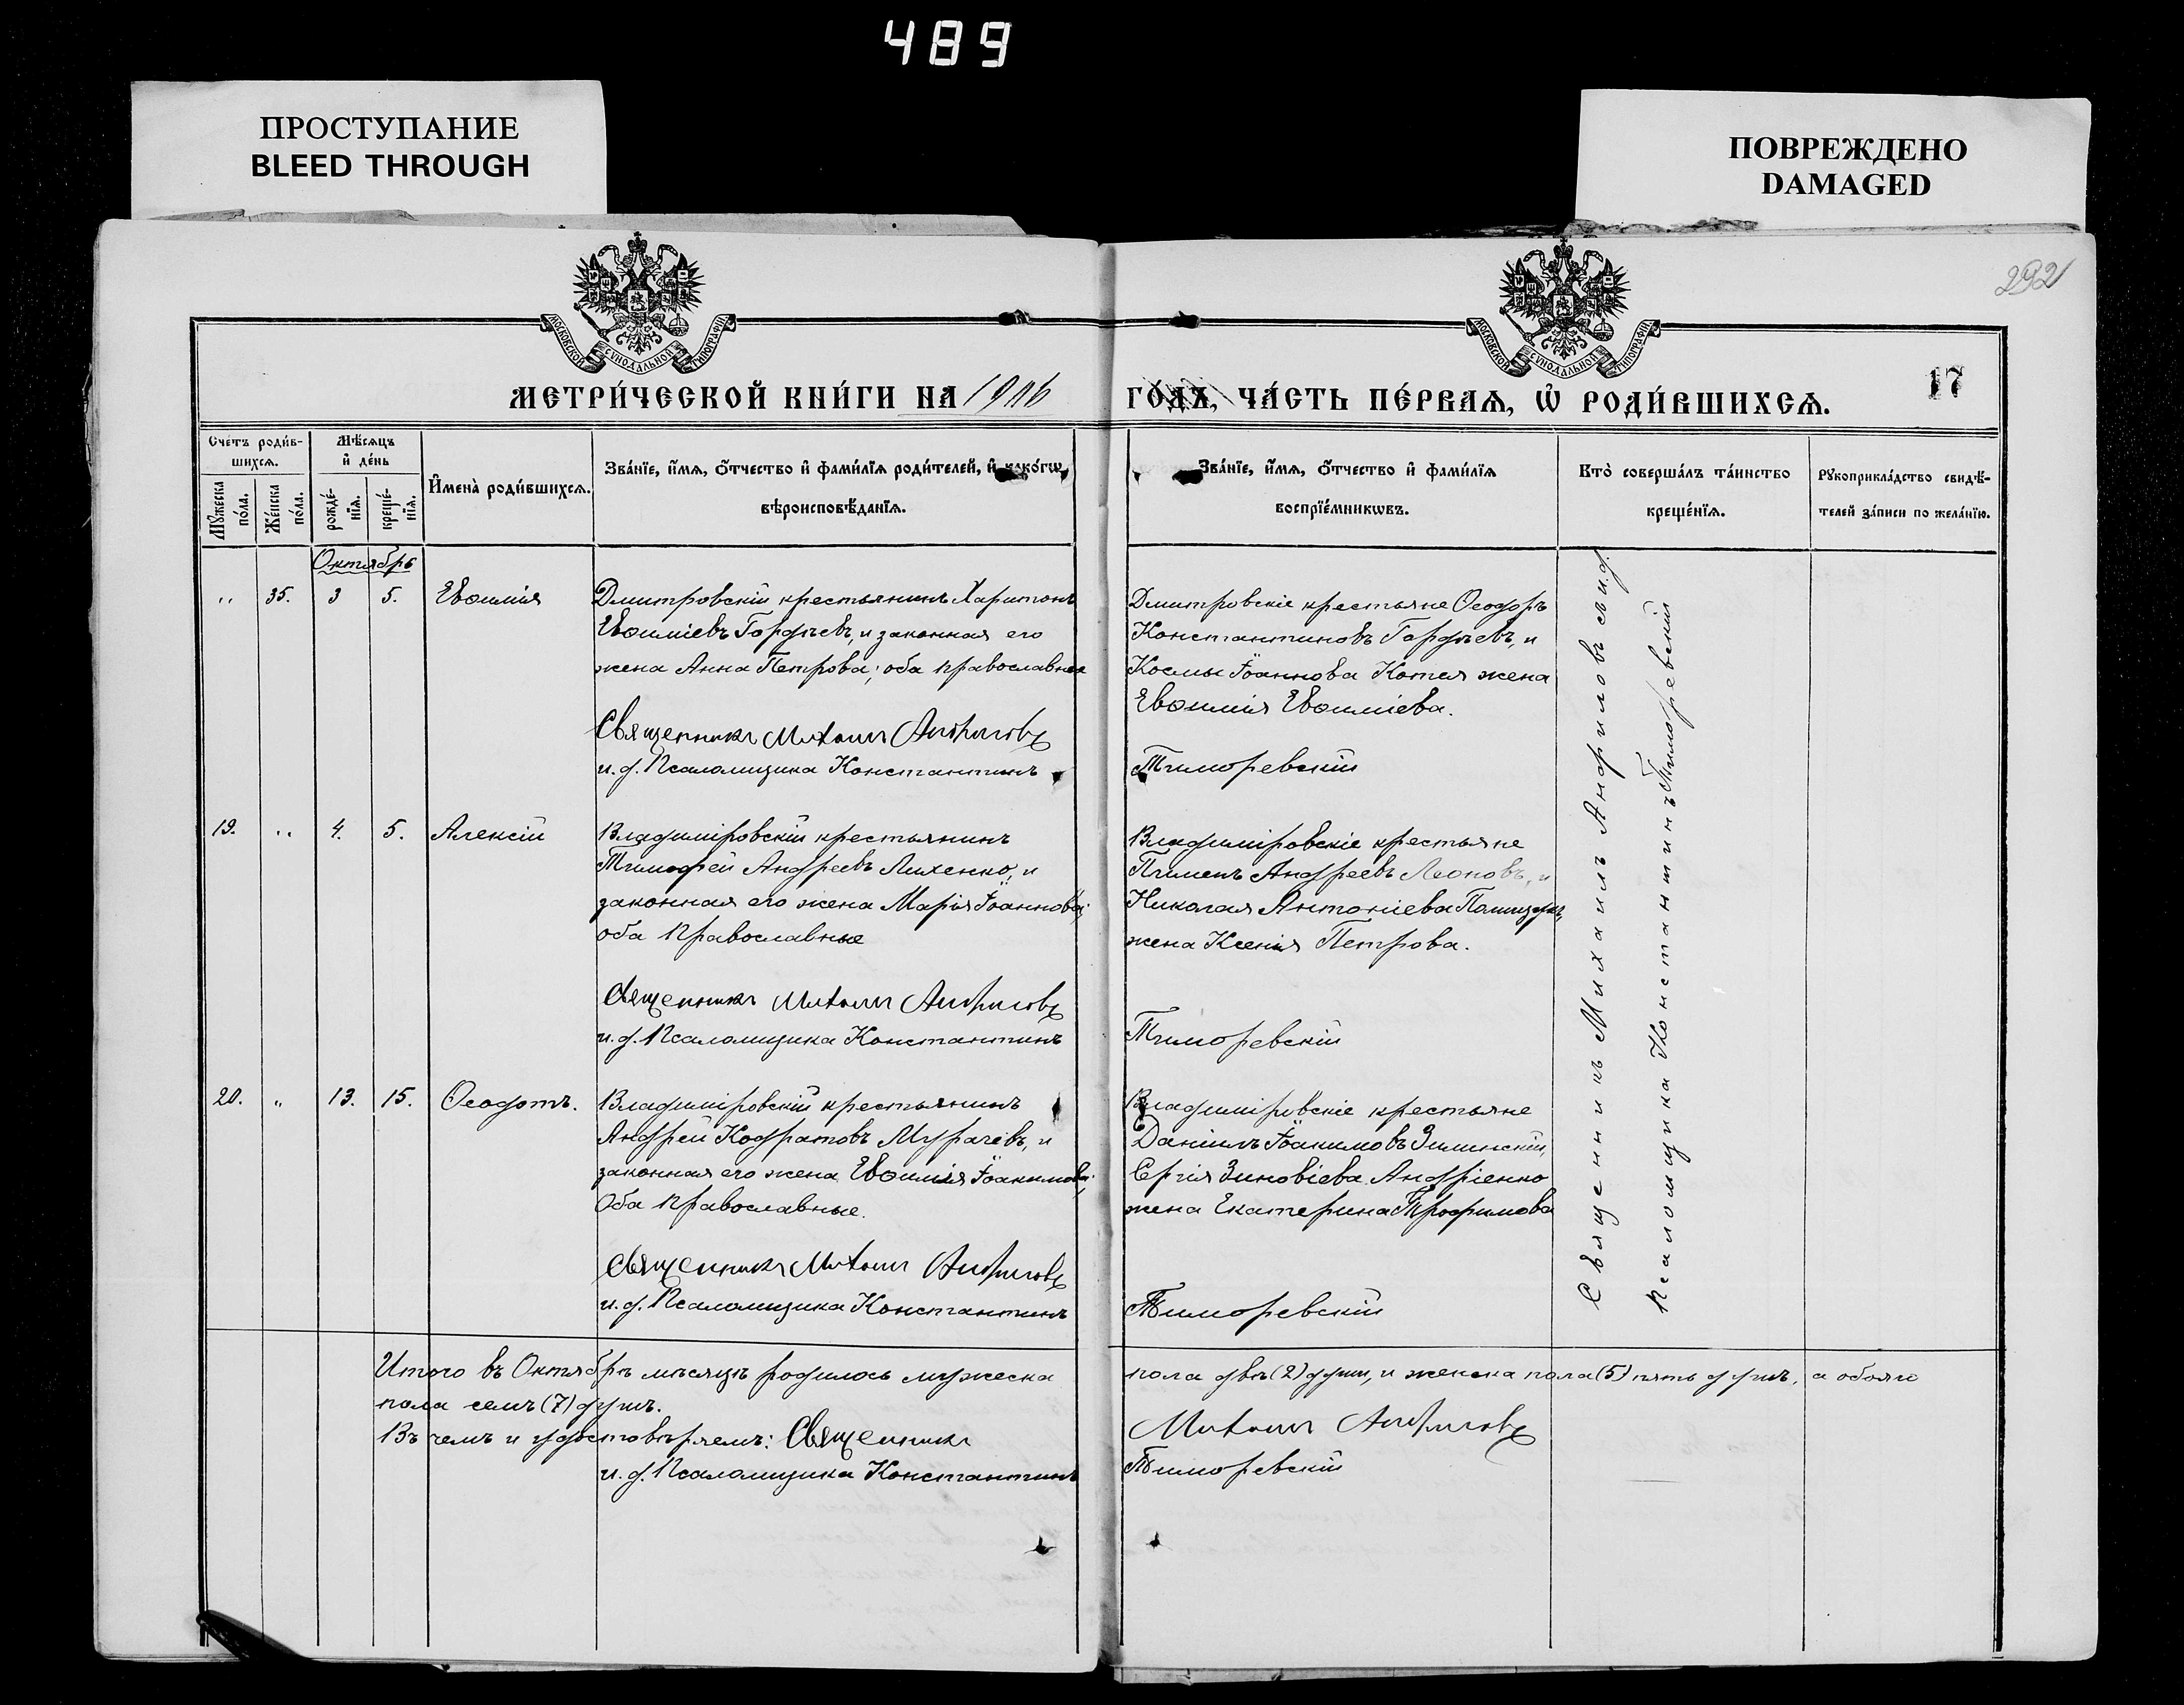 489
ПРОСТУПАНИЕ
BLEED THROUGH
ПОВРЕЖДЕНО
DAMAGED
292
17
МОСКОВСКОЙ СѴНОДАЛЬНОЙ ТИПОГРАФІИ
МОСКОВСКОЙ СѴНОДАЛЬНОЙ ТИПОГРАФІИ
МЕТРИ́ЧЕСКОЙ КНИ́ГИ НА 1906 ГО́ДЪ, ЧА́СТЬ ПЕ́РВАѦ, Ѡ҆ РОДИ́ВШИХСѦ.
Сче́тъ роди́в-
шихсѧ.
Мꙋ́жеска по́ла.
Же́нска по́ла.
Мѣ́сѧцъ
и҆ де́нь
рожде́-
нїѧ.
креще́-
нїѧ.
И҆мена̀ роди́вшихсѧ.
Зва́нїе, и҆́мѧ, ѻ҆́тчество и҆ фами́лїѧ роди́телей, и҆ како́гѡ
вѣроисповѣ́данїѧ.
Зва́нїе, и҆́мѧ, ѻ҆́тчество и҆ фами́лїѧ
воспрїе́мникѡвъ.
Кто̀ соверша́лъ та́инство
креще́нїѧ.
Рꙋкоприкла́дство свидѣ́-
телей за́писи по жела́нїю.
Октябрь
" 35. 3 5. Евѳимія
Дмитровскій крестьянинъ Харитонъ
Евѳиміевъ Гордѣевъ, и законная его
жена Анна Петрова; оба православные
Священникъ Михаилъ Анфиловъ
и. д. Псаломщика Константинъ
Дмитровскіе крестьяне Ѳеодоръ
Константиновъ Гордѣевъ, и
Космы Іоаннова Котея жена
Евѳимія Евѳиміева.
Тиморевскій
19. " 4. 5. Алексій
Владиміровскій крестьянинъ
Тимофей Андреевъ Лихенко, и
законная его жена Марія Іоаннова;
оба православные
Священникъ Михаилъ Анфиловъ
и. д. Псаломщика Константинъ
Владиміровскіе крестьяне
Пименъ Андреевъ Леоновъ, и
Николая Антоніева
жена Ксенія Петрова.
Тиморевскій
20. " 13. 15. Ѳеодотъ.
Владиміровскій крестьянинъ
Андрей Кодратовъ Мурачевъ, и
законная его жена Евѳимія Іоакимова;
Оба православные.
Священникъ Михаилъ Анфиловъ
и. д. Псаломщика Константинъ
Владиміровскіе крестьяне
Даніилъ Іоакимовъ Зилинскій,
Сергія Зиновіева Андріенко
жена Екатерина Трофимова
Тиморевскій
Священникъ Михаилъ Анфиловъ съ и. д.
Псаломщика Константинъ Тиморевскій
Итого въ Октябрѣ мѣсяцѣ родилось мужеска пола двѣ (2) души, и женска пола (5) пять душъ, а обоего
пола семь (7) душъ.
Въ чемъ и удостовѣряемъ: Священникъ Михаилъ Анфиловъ
и. д. Псаломщика Константинъ Тиморевскій